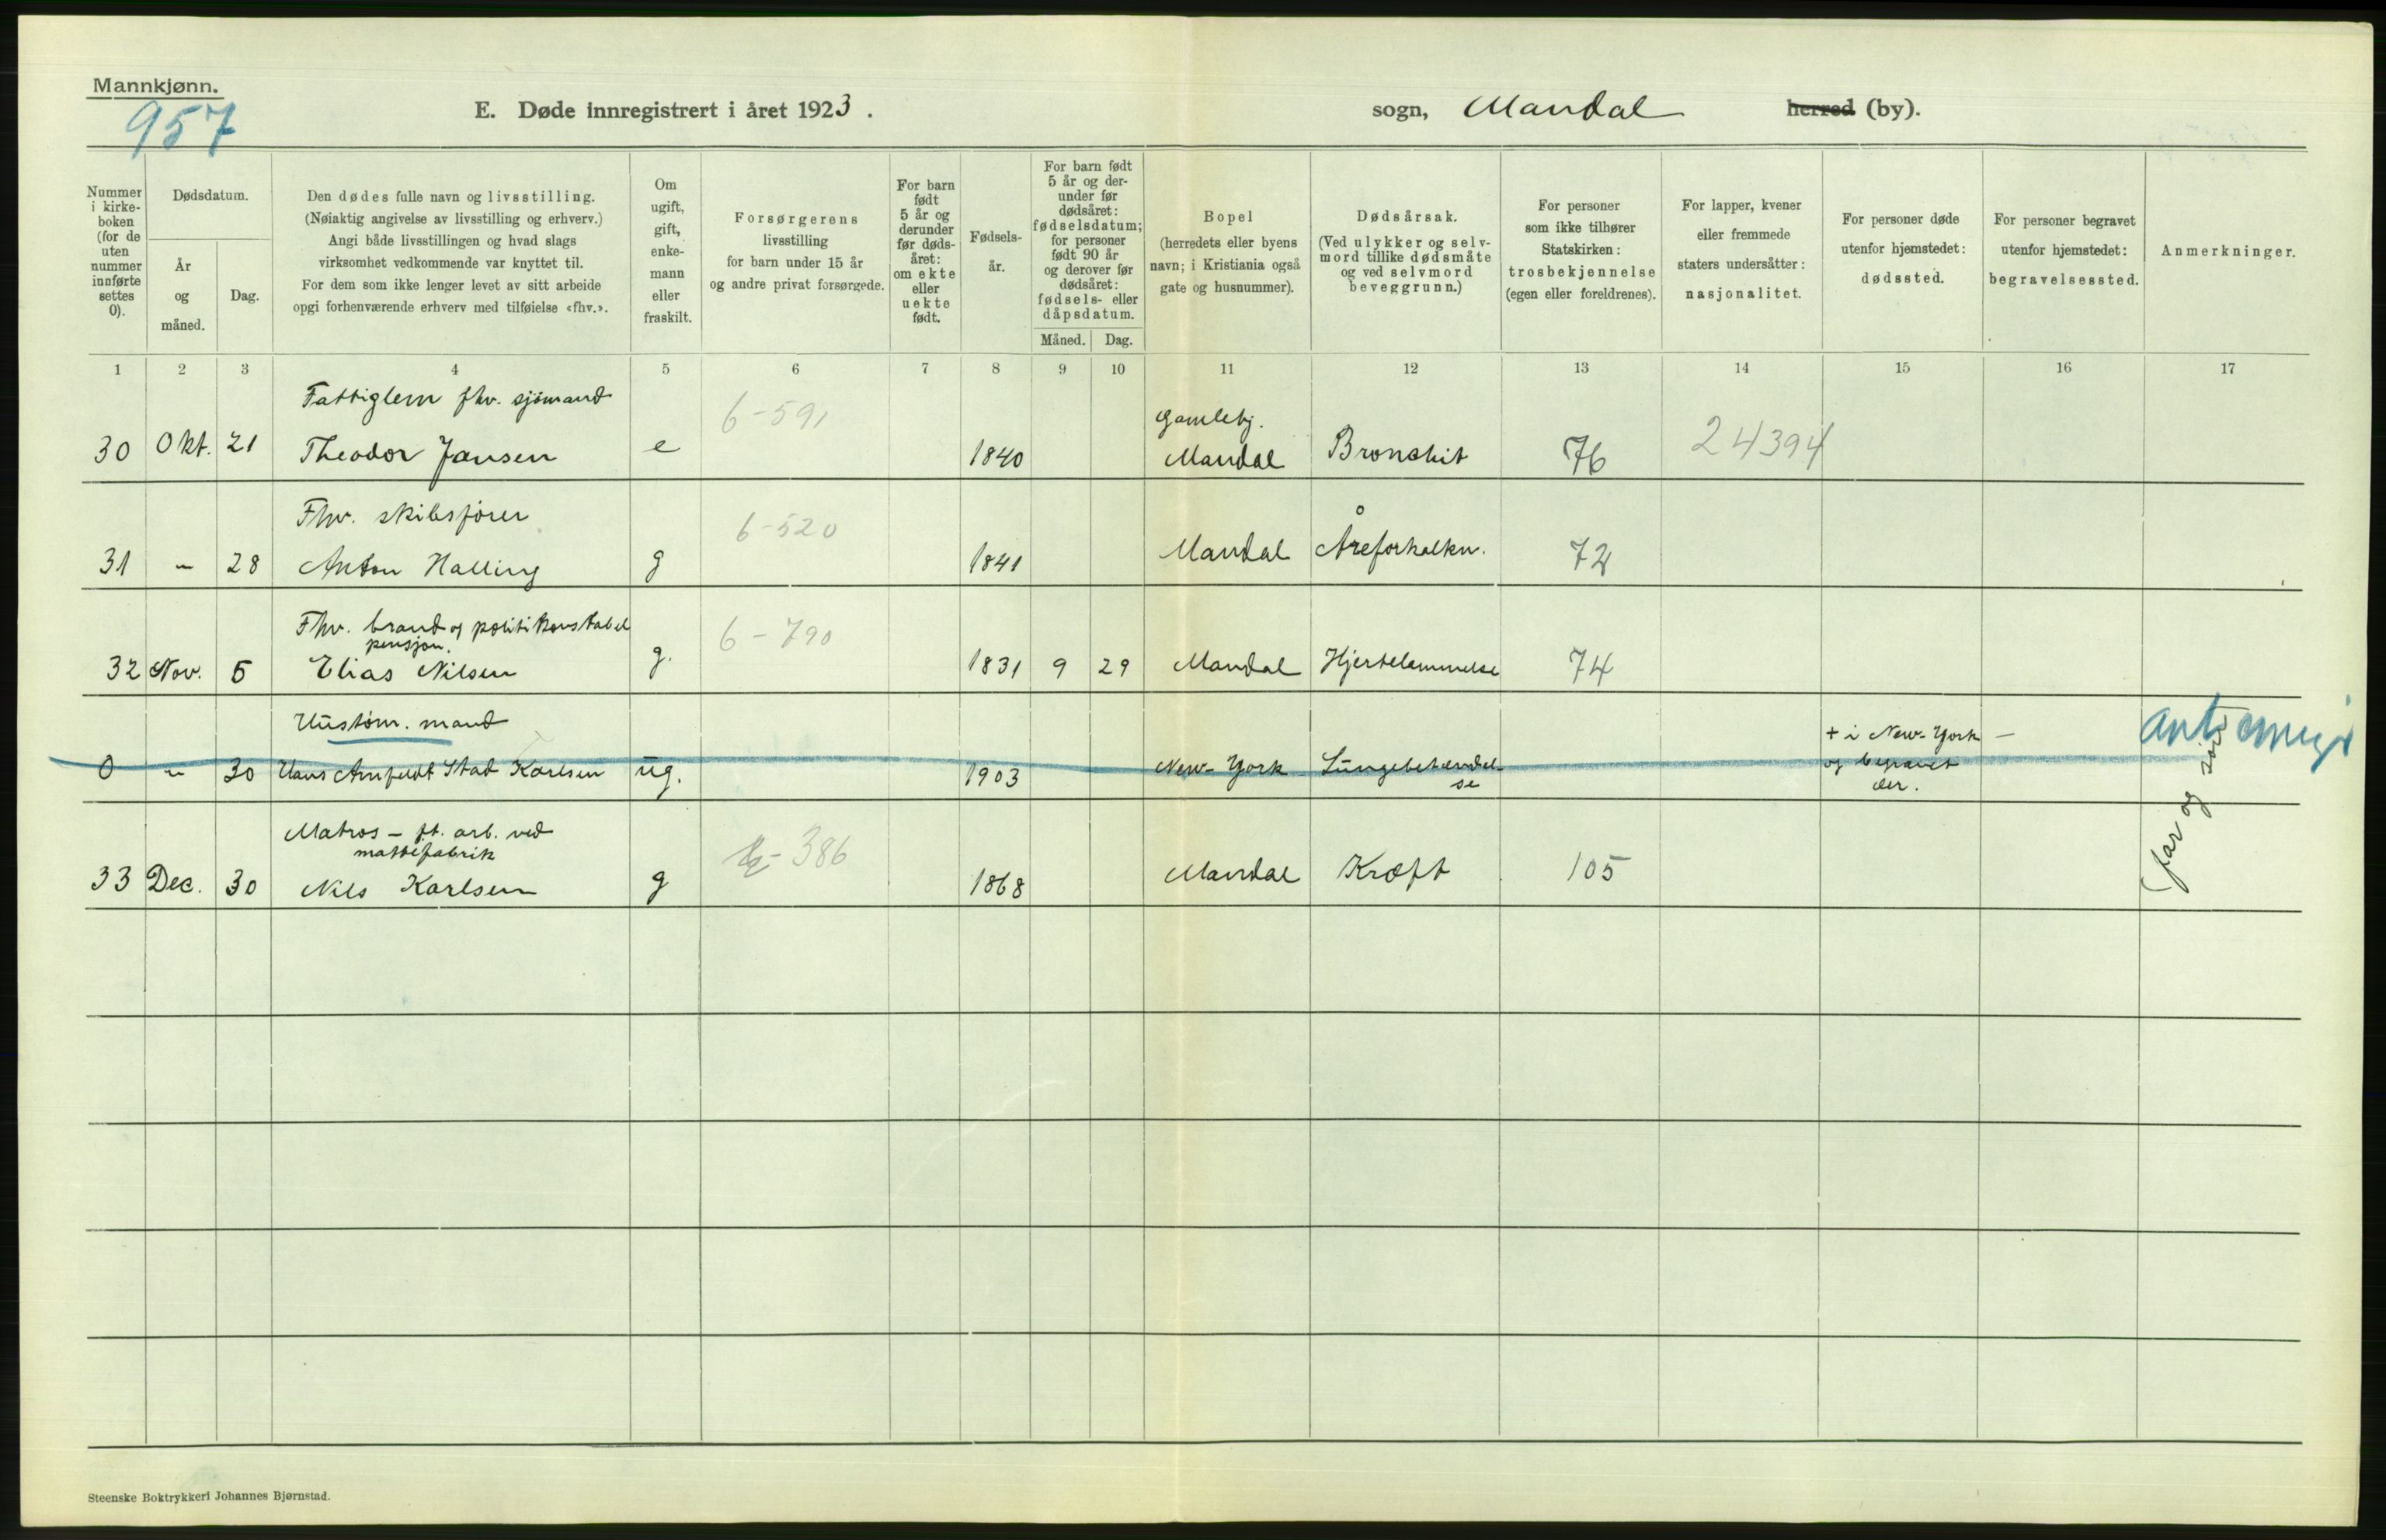 Mannkjønn.
957
E. Døde innregistrert i året 1923.
sogn, Mandal herred (by).
Nummer i kirke-boken (for de uten nummer innførte settes 0).
Dødsdatum.
År og måned.
Dag.
Den dødes fulle navn og livsstilling.
(Nøiaktig angivelse av livsstilling og erhverv.)
Angi både livsstillingen og hvad slags
virksomhet vedkommende var knyttet til.
For dem som ikke lenger levet av sitt arbeide
opgi forhenværende erhverv med tilføielse «fhv.».
Om ugift, gift, enke-mann eller fraskilt.
Forsørgerens
livsstilling
for barn under 15 år
og andre privat forsørgede.
For barn født 5 år og derunder før døds-året: om ekte eller uekte født.
Fødsels-år.
For barn født 5 år og der-under før dødsåret: fødselsdatum; for personer født 90 år og derover før dødsåret: fødsels- eller dåpsdatum.
Måned.
Dag.
Bopel
(herredets eller byens
navn; i Kristiania også
gate og husnummer).
Dødsårsak.
(Ved ulykker og selv-
mord tillike dødsmåte
og ved selvmord
beveggrunn.)
For personer
som ikke tilhører
Statskirken:
trosbekjennelse
(egen eller foreldrenes).
For lapper, kvener
eller fremmede
staters undersåtter:
nasjonalitet.
For personer døde
utenfor hjemstedet:
dødssted.
For personer begravet
utenfor hjemstedet:
begravelsessted.
Anmerkninger.
1 2 3 4 5 6 7 8 9 10 11 12 13 14 15 16 17
Fattiglem fhv. sjömand
6-591
Gamlehj.
30 Okt. 21 Theodor Jansen e 1840 Mandal Bronchit 76 24394
Fhv. skibsfører
6-520
31 - 28 Anton Halling g 1841 Mandal Åreforkalkn. 72
Fhv. brand og politikonstabel
pensjon.
6-790
32 Nov. 5 Elias Nilsen g. 1831 9 29 Mandal Hjertelammelse 74
Hustöm. mand
0 - 30 Hans Arnfeldt Stad Karlsen ug. 1903 New-York Lungebetændel-
se
+ i New-York -
og begravet
der.
Matros - f.t. arb. ved
mattefabrik
386
33 Dec. 30 Nils Karlsen g 1868 Mandal Kræft 105
far og sön
Steenske Boktrykkeri Johannes Bjørnstad.